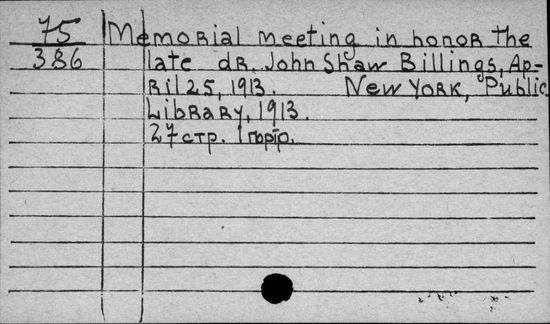 75 Memorial meeting in honor the
386 late dr. John Shaw Billings, Ap-
ril 25, 1913. New York, Public
Library, 1913.
27 стр. 1 портр.